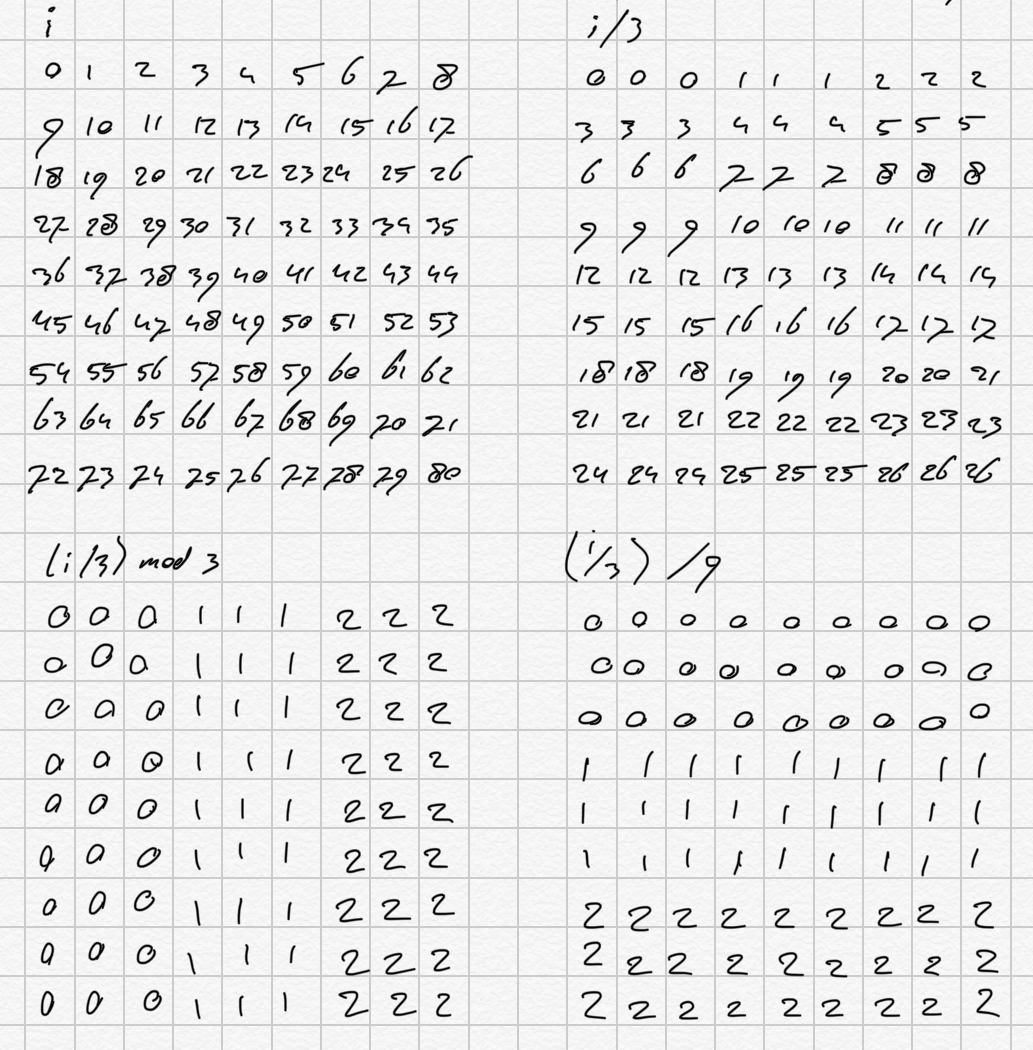 i
0 1 2 3 4 5 6 7 8
9 10 11 12 13 14 15 16 17
18 19 20 21 22 23 24 25 26
27 28 29 30 31 32 33 34 35
36 37 38 39 40 41 42 43 44
45 46 47 48 49 50 51 52 53
54 55 56 57 58 59 60 61 62
63 64 65 66 67 68 69 70 71
72 73 74 75 76 77 78 79 80
i/3
0 0 0 1 1 1 2 2 2
3 3 3 4 4 4 5 5 5
6 6 6 7 7 7 8 8 8
9 9 9 10 10 10 11 11 11
12 12 12 13 13 13 14 14 14
15 15 15 16 16 16 17 17 17
18 18 18 19 19 19 20 20 21
21 21 21 22 22 22 23 23 23
24 24 24 25 25 25 26 26 26
(i/3) mod 3
0 0 0 1 1 1 2 2 2
0 0 0 1 1 1 2 2 2
0 0 0 1 1 1 2 2 2
0 0 0 1 1 1 2 2 2
0 0 0 1 1 1 2 2 2
0 0 0 1 1 1 2 2 2
0 0 0 1 1 1 2 2 2
0 0 0 1 1 1 2 2 2
0 0 0 1 1 1 2 2 2
(i/3) /9
0 0 0 0 0 0 0 0 0
0 0 0 0 0 0 0 0 0
0 0 0 0 0 0 0 0 0
1 1 1 1 1 1 1 1 1
1 1 1 1 1 1 1 1 1
1 1 1 1 1 1 1 1 1
2 2 2 2 2 2 2 2 2
2 2 2 2 2 2 2 2 2
2 2 2 2 2 2 2 2 2